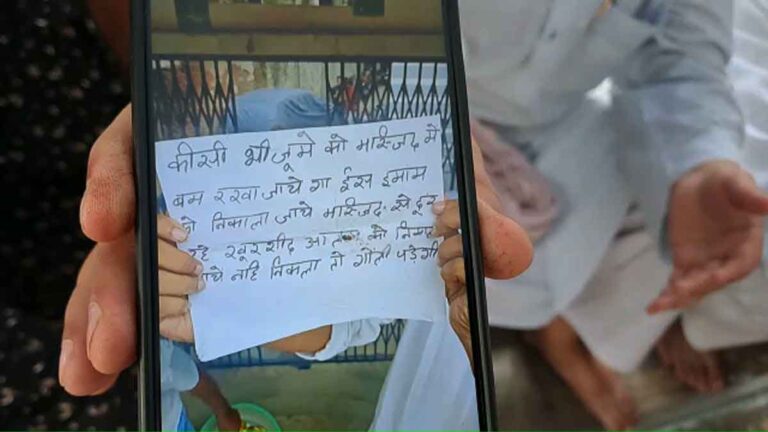 कीसी भी जूमे को मास्जिद मे
बम रखा जाये गा ईस इमाम
को निकाला जाये मास्जिद से दूर
रहे खूरशीद को
नहि निकला तो गोली पड़ेगी